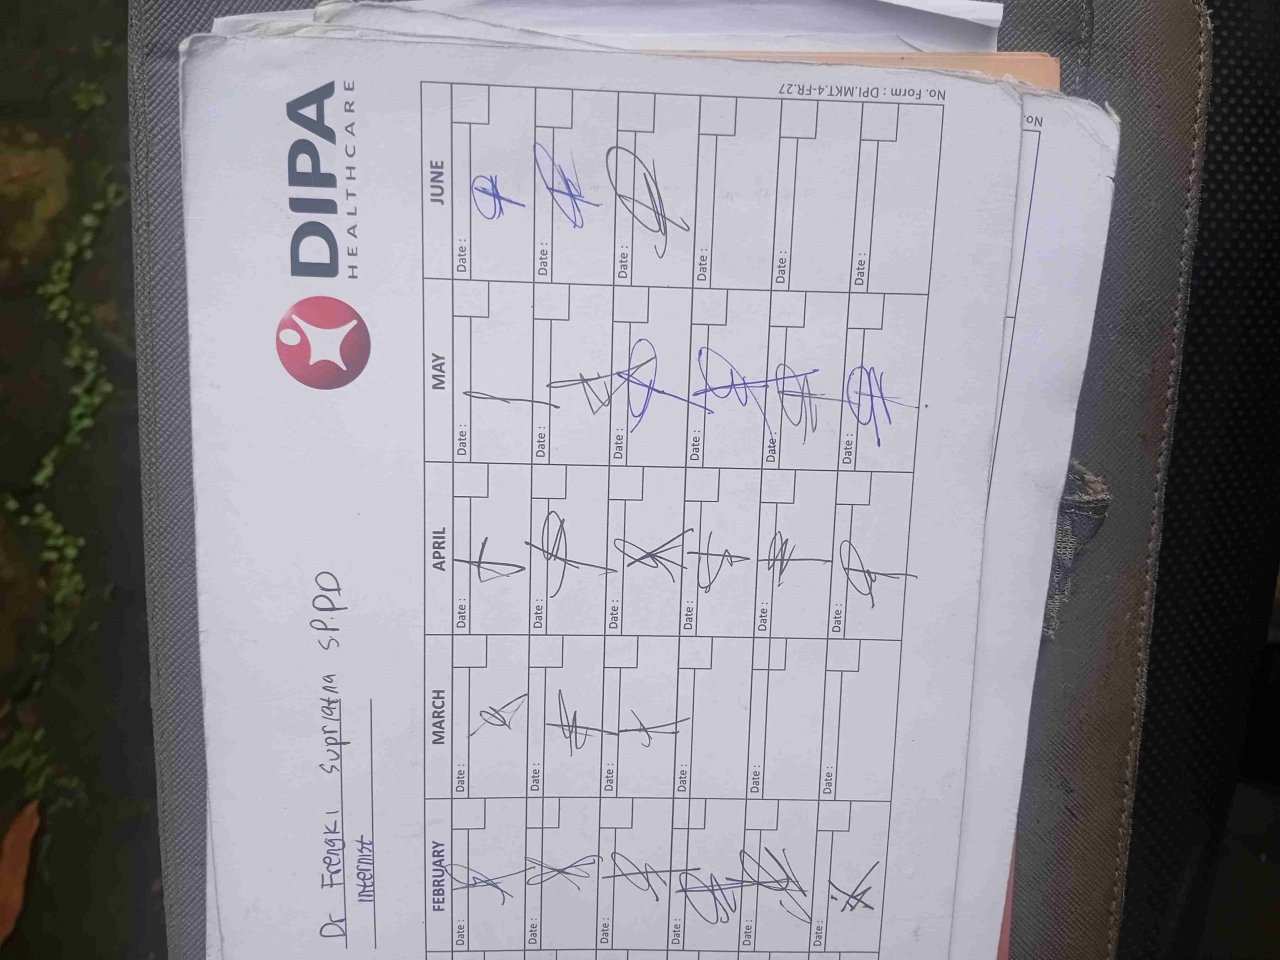 DIPA
HEALTHCARE
Dr Frengki Supriatna S.P.PD
Internist
FEBRUARY MARCH APRIL MAY JUNE
Date : Date : Date : Date : Date :
Date : Date : Date : Date : Date :
Date : Date : Date : Date : Date :
Date : Date : Date : Date : Date :
Date : Date : Date : Date : Date :
Date : Date : Date : Date : Date :
No. Form : DPI.MKT.4-FR.27
No.